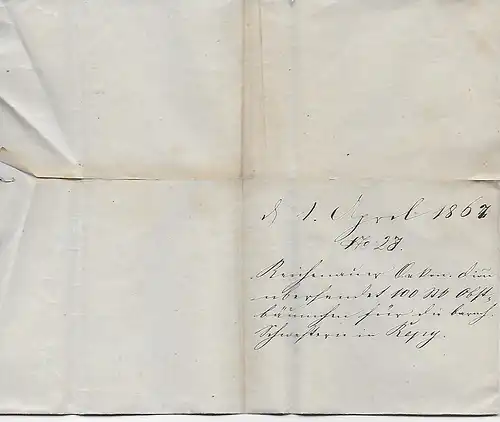 d 1. April 1867
No 27.
Reichenauer Oekon. Dir.
übersendet 100 Stk Obst-
bäumchen für die barmh.
Schwestern in Repy.